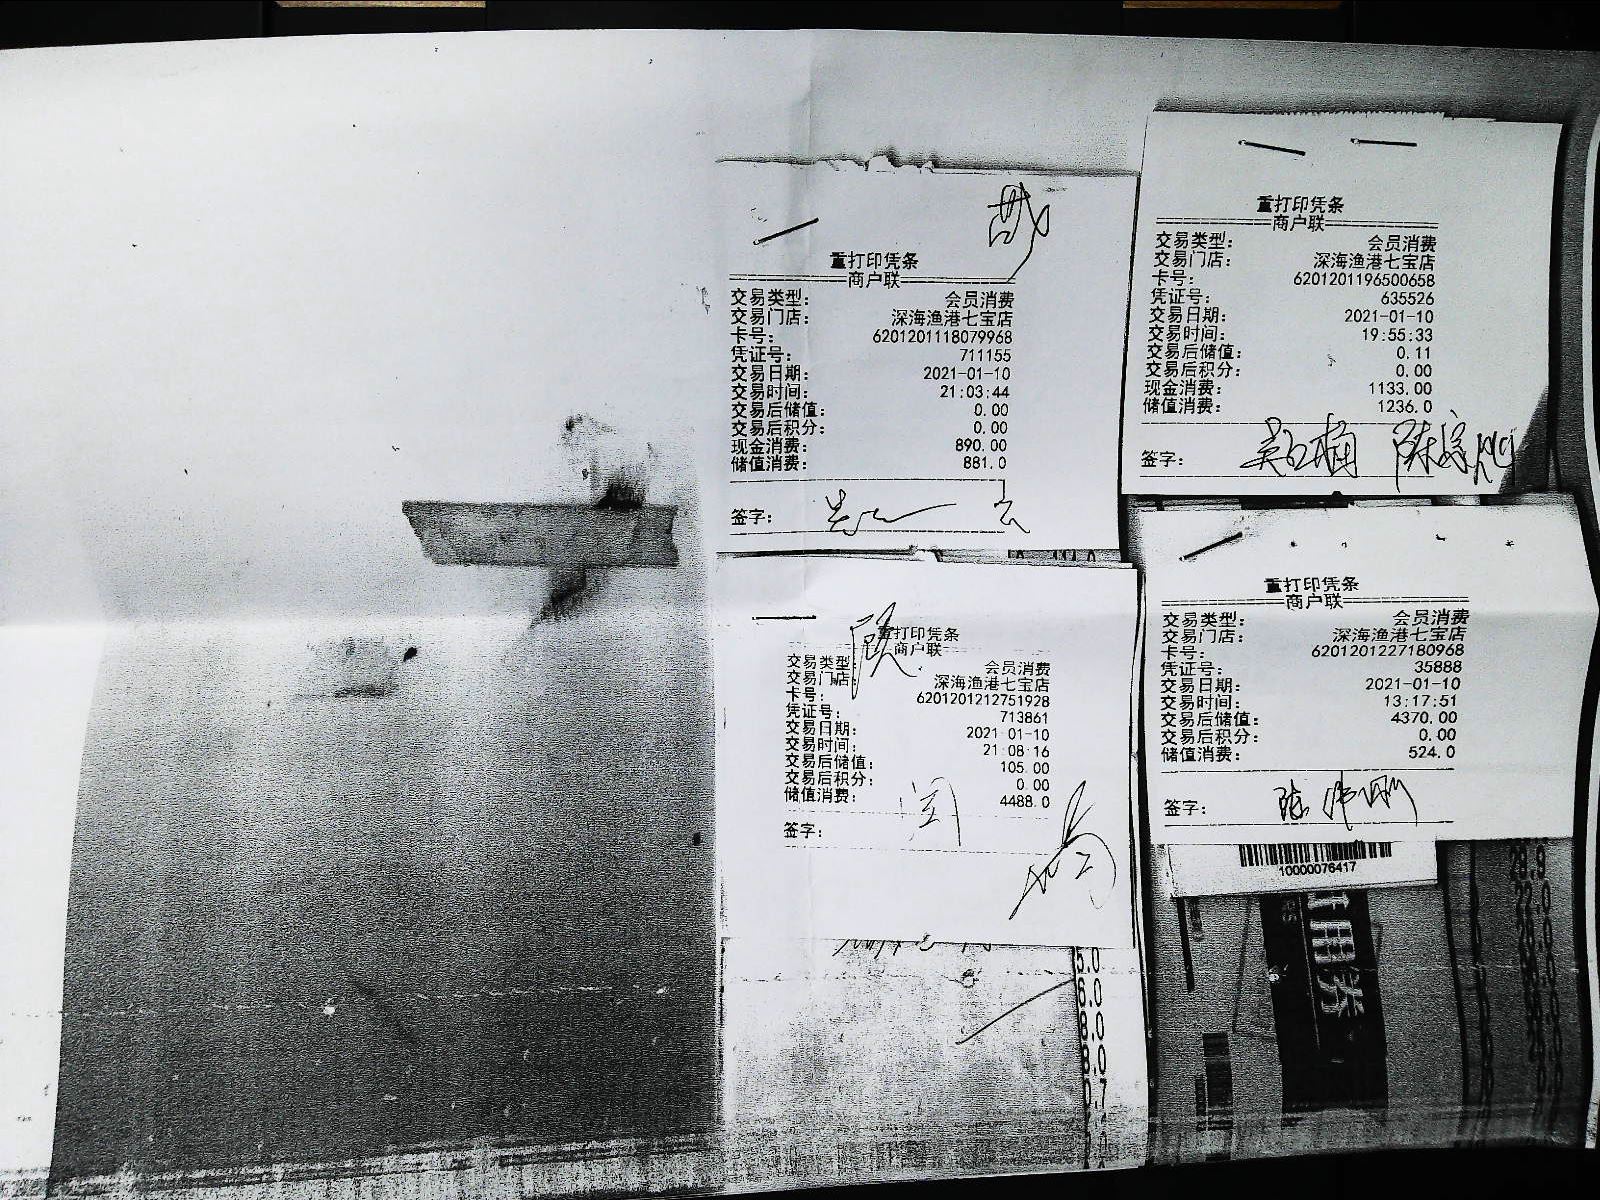 重打印凭条
商户联
交易类型: 会员消费
交易门店: 深海渔港七宝店
卡号: 6201201118079968
凭证号: 711155
交易日期: 2021-01-10
交易时间: 21:03:44
交易后储值: 0.00
交易后积分: 0.00
现金消费: 890.00
储值消费: 881.0
签字:
重打印凭条
商户联
交易类型: 会员消费
交易门店: 深海渔港七宝店
卡号: 6201201212751928
凭证号: 713861
交易日期: 2021-01-10
交易时间: 21:08:16
交易后储值: 105.00
交易后积分: 0.00
储值消费: 4488.0
签字:
重打印凭条
商户联
交易类型: 会员消费
交易门店: 深海渔港七宝店
卡号: 6201201196500658
凭证号: 635526
交易日期: 2021-01-10
交易时间: 19:55:33
交易后储值: 0.11
交易后积分: 0.00
现金消费: 1133.00
储值消费: 1236.0
签字:
重打印凭条
商户联
交易类型: 会员消费
交易门店: 深海渔港七宝店
卡号: 6201201227180968
凭证号: 35888
交易日期: 2021-01-10
交易时间: 13:17:51
交易后储值: 4370.00
交易后积分: 0.00
储值消费: 524.0
签字: 陈伟刚
10000076417
用券